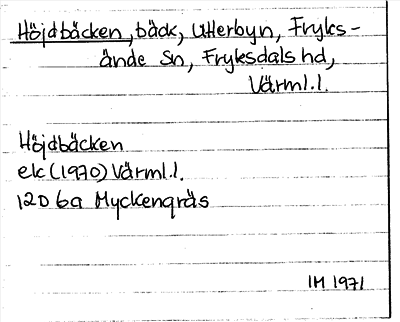 Höjdbäcken, bäck, Utterbyn, Fryks-
ände Sn, Fryksdals hd,
Värml.l.
Höjdbäcken
ek (1970) Värml.l.
12D 6a Myckengräs
IM 1971